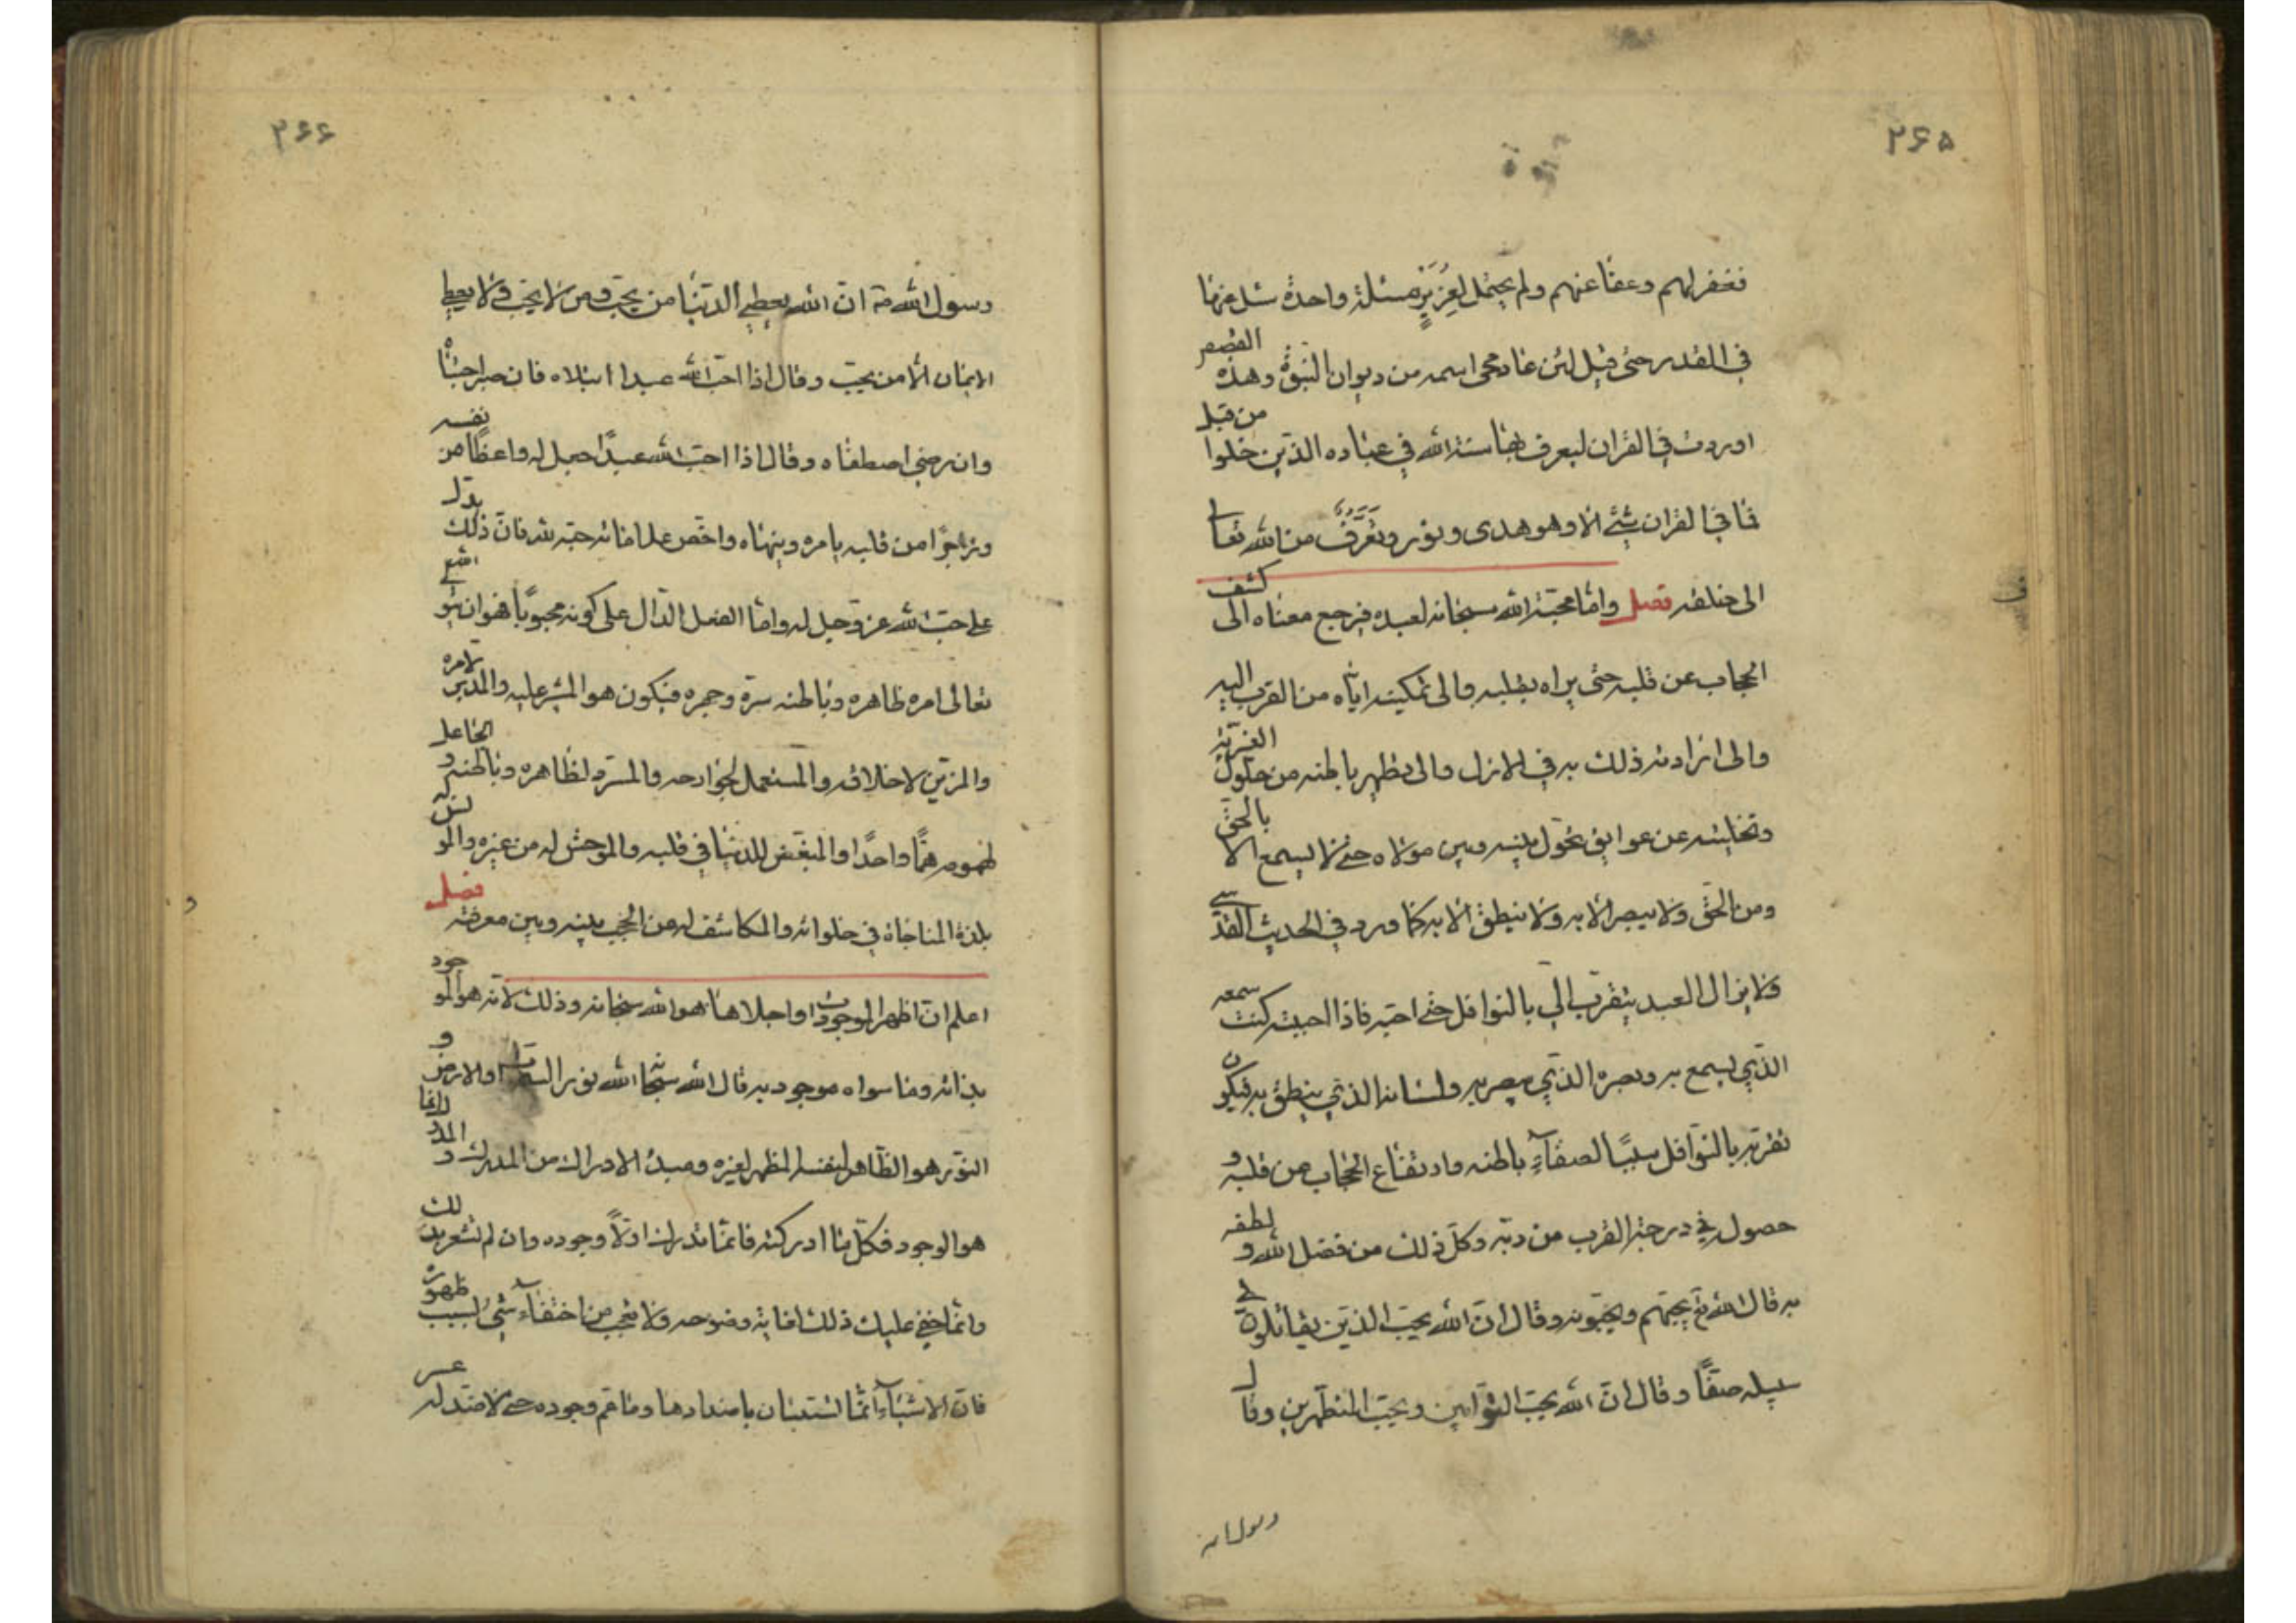 ۲۶۵
فغفر لهم وعفا عنهم ولم يحتمل لعزيز مسئلة واحدة سئل عنها
في القدر حتى قيل لئن عاد محي اسمه من ديوان النبوة وهذه القصص
اوردت في القران ليعرف بها سنة الله في عباده الذين خلوا من قبل
فما في القران شيئ الا وهو هدى ونور وتعرف من الله تعالى
الى خلقه فصل واما محبة الله سبحانه لعبده فيرجع معناه الى كشف
الحجاب عن قلبه حتى يراه بقلبه والى تمكينه اياه من القرب اليه
والى ارادته ذلك به في الازل والى تطهير باطنه من حلول الغير به
وتخليته عن عوايق تحول بينه وبين مولاه حتى لا يسمع الا بالحق
ومن الحق ولا يبصر الا به ولا ينطق الا به كما ورد في الحديث القدسي
ولا يزال العبد يتقرب الي بالنوافل حتى احبه فاذا احببته كنت سمعه
الذي يسمع به وبصره الذي يبصر به ولسانه الذي ينطق به فيكون
تقربه بالنوافل سببًا لصفاء باطنه وارتفاع الحجاب عن قلبه و
حصوله في درجة القرب من ربه وكل ذلك من فضل الله و لطفه
به قال الله تع يحبهم ويحبونه وقال ان الله يحب الذين يقاتلون في
سبيله صفًا وقال ان الله يحب التوابين ويحب المتطهرين وقال
رسول الله
۲۶۶
رسول الله ان الله يعطي الدنيا من يحب ومن لا يحب ولا يعطي
الايمان الا من يحب وقال اذا احب الله عبدا ابتلاه فان صبر اجتباه
وان رضي اصطفاه وقال اذا احب الله عبدًا جعل له واعظًا من نفسه
وزاجرًا من قلبه يامره وينهاه واخص علاماته حبه لله فان ذلك يدل
على حب الله عز وجل له واما الفعل الدال على كونه محبوبًا فهو ان يتولى الله
تعالى امره ظاهره وباطنه سره وجهره فيكون هو المشير عليه والمدبر لامره
والمزين لاخلاقه والمستعمل لجوارحه والمسدد لظاهره وباطنه و الجاعل
لهمومه همًّا واحدًا والمبغض للدنيا في قلبه والموحش له من غيره والمونس له
بلذة المناجاة في خلواته والمكاشف له من الحجب بينه وبين معرفته فصل
اعلم ان اظهر الموجودات واجلاها هو الله سبحانه وذلك لانه هو الموجود
بذاته وما سواه موجود به قال الله سبحانه الله نور السموات والارض و
النور هو الظاهر لنفسه المظهر لغيره ومبدء الادراك من المدرك و
هو الوجود فكل ما ادركته فانما تدرك اولًا وجوده وان لم تشعر بذلك
وانما خفي عليك ذلك لغاية وضوحه ولا تعجب من اختفاء شيء بسبب ظهوره
فان الاشياء انما تستبان باضدادها وما عم وجوده حتى لا ضد له عسر